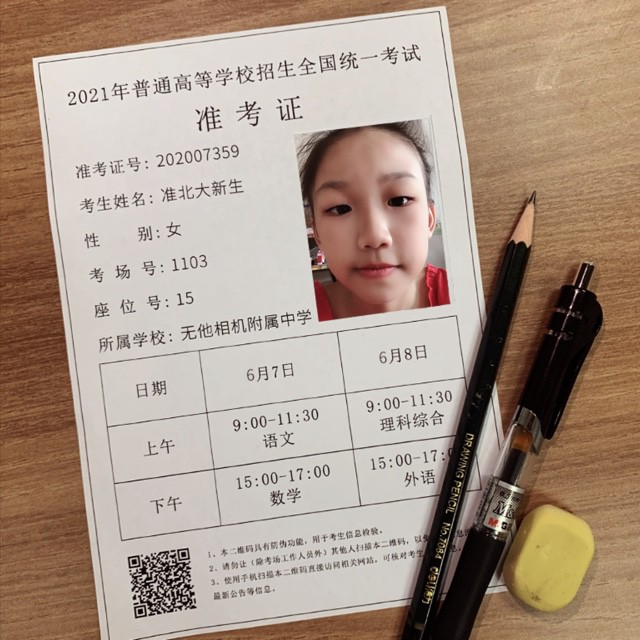 2021年普通高等学校招生全国统一考试
准考证
准考证号: 202007359
考生姓名: 准北大新生
性 别: 女
考 场 号: 1103
座 位 号: 15
所属学校: 无他相机附属中学
日期 6月7日 6月8日
上午 9:00-11:30 语文 9:00-11:30 理科综合
下午 15:00-17:00 数学 15:00-17:0 外语
1、本二维码具有防伪功能，用于考生信息检验。
2、请勿让（除考场工作人员外）其他人扫描本二维码，以免
3、使用手机扫描本二维码直接访问相关网站。可核对考生
最新公告等信息。
DRAWING PENCIL No.7084